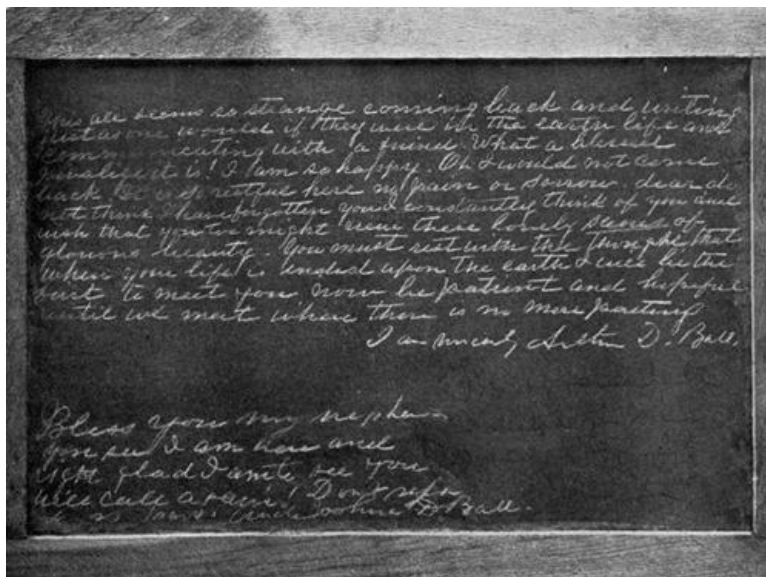 This all seems so strange coming back and writing
just as one would if they were in the earth life and
communicating with a friend. What a blessed
privilege it is! I am so happy. Oh I would not come
back. It is so restful here no pain or sorrow. dear do
not think I have forgotten you I constantly think of you and
wish that you too might view these lovely scenes of
glorious beauty. You must rest with the thought that
when your life is ended upon the earth I will be the
first to meet you now be patient and hopeful
until we meet where there is no more parting
I am sincerely D. Ball.
Bless you my nephew
You see I am here and
right glad I am to see you
will call again! Don't
Uncle Ball.